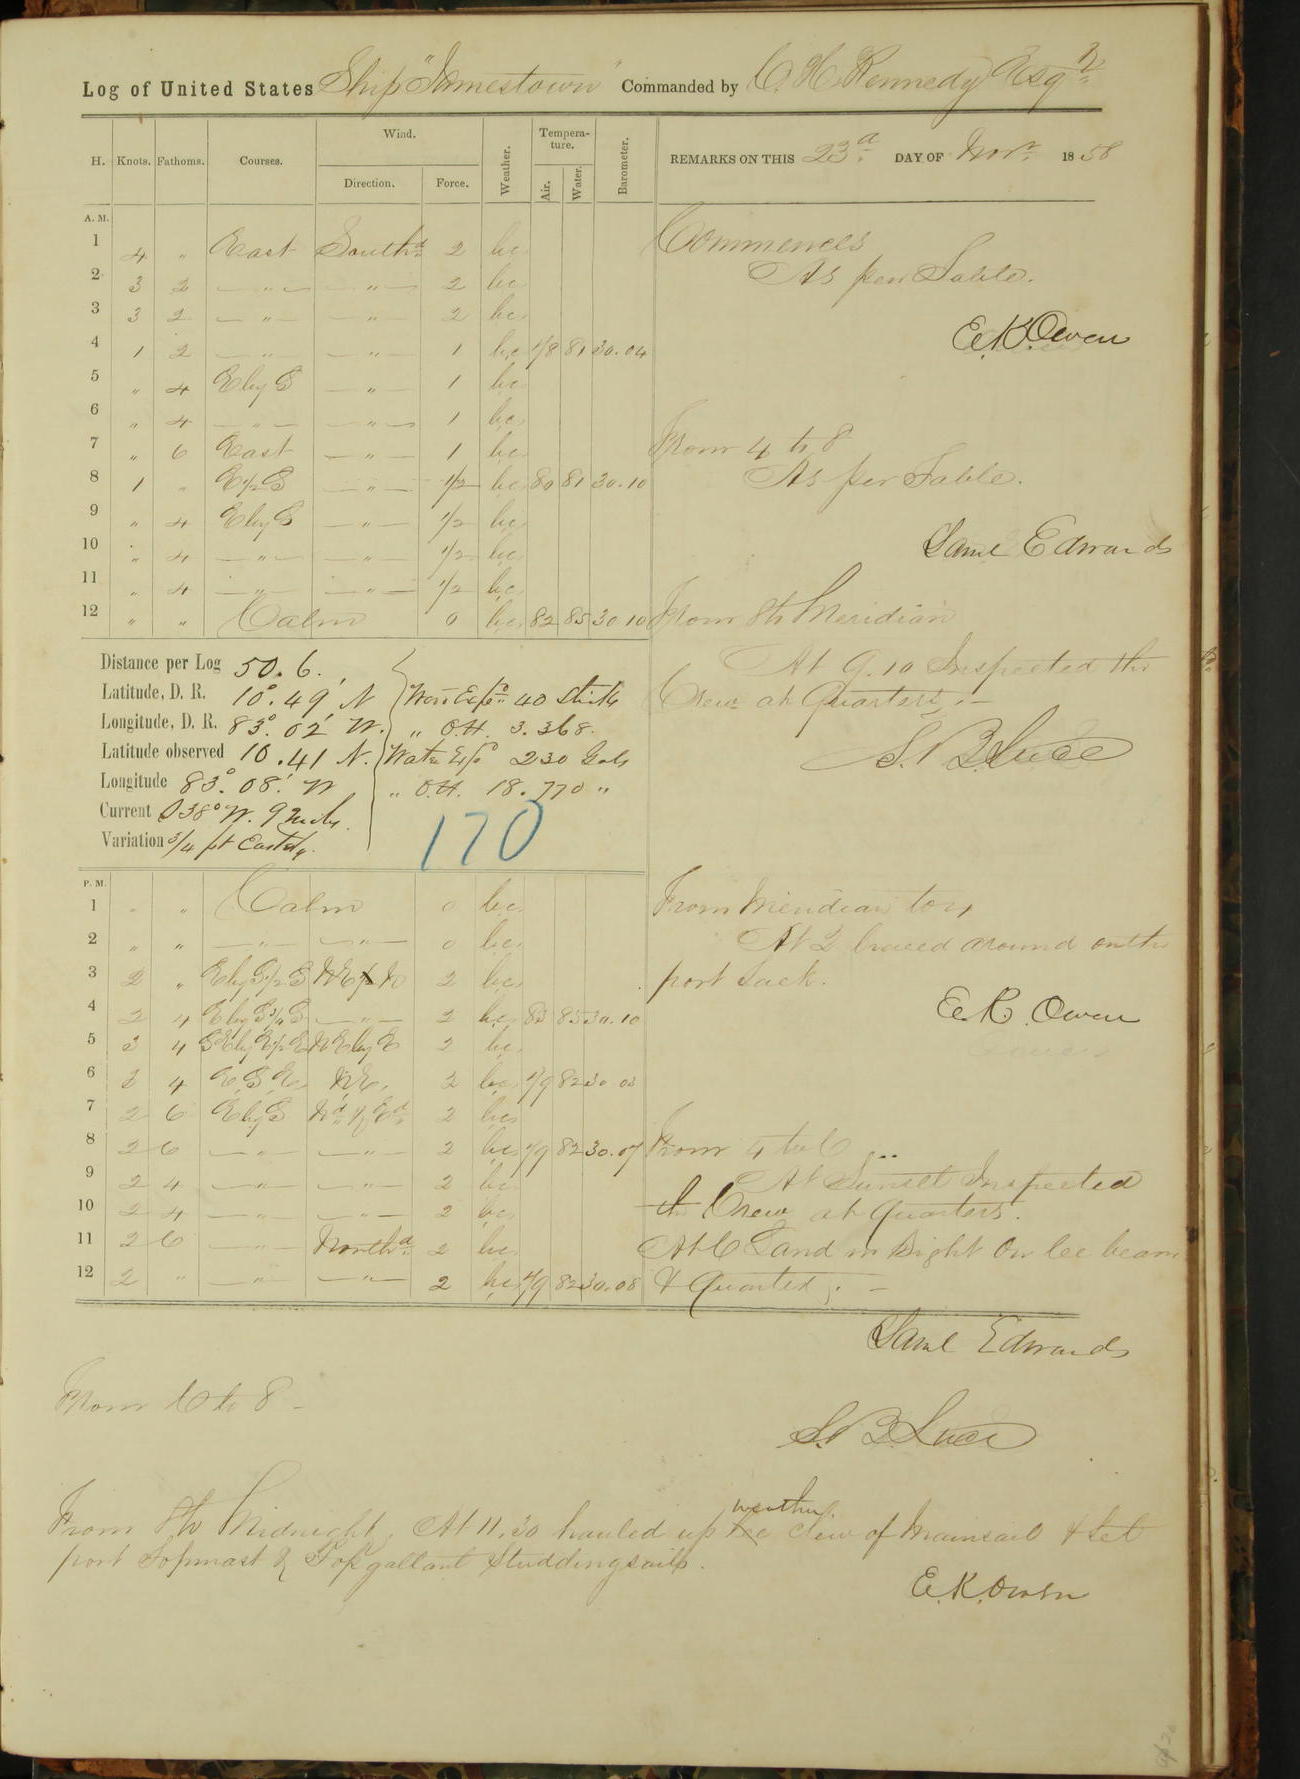 Log of United States Ship "Jamestown" Commanded by C. H. Kennedy Esqr
H. Knots. Fathoms. Courses. Wind. Direction. Force. Weather. Tempera-ture. Air. Water. Barometer. REMARKS ON THIS 23d DAY OF Novr 1858
A. M.
1 4 " East Southd 2 bc
2 3 2 — " — — " — 2 bc
3 3 2 — " — — " — 2 bc
4 1 2 — " — — " — 1 bc 78 81 30.04
5 " 4 E by S — " — 1 bc
6 " 4 — " — — " — 1 bc
7 " 6 East — " — 1 bc
8 1 " E 1/2 S — " — 1/2 bc 80 81 30.10
9 " 4 E by S — " — 1/2 bc
10 " 4 — " — — " — 1/2 bc
11 " 4 — " — — " — 1/2 bc
12 " " Calm 0 bc 82 85 30 10
Commences
As per Table.
E. K. Owen
From 4 to 8
As per Table.
Saml Edwards
From 8 to Meridian
At 9.10 Inspected the
Crew at Quarters. —
S. B. Luce
Distance per Log 50.6.
Latitude, D. R. 10°.49' N
Longitude, D. R. 83°.02' W.
Latitude observed 10.41 N.
Longitude 83°.08' W
Current S 38° W. 9 Mils.
Variation 3/4 pt Eastly.
Wood Expd 40 sticks
" O.H. 3.368.
Water Expd 230 Gals
" O.H. 18.770 "
170
P. M.
1 " " Calm 0 bc
2 " " — " — — " — 0 bc
3 2 " E by S 1/2 S NE N 2 bc
4 2 4 E by S 3/4 S — " — 2 bc 83 85 30.10
5 3 4 SE by E 1/2 E NE by E 2 bc
6 3 4 E. S. E. NE. 2 bc 79 82 30 03
7 2 6 E by S Nd & Ed 2 bc
8 2 6 — " — — " — 2 bc 79 82 30.07
9 2 4 — " — — " — 2 bc
10 2 4 — " — — " — 2 bc
11 2 6 — " — Northd 2 bc
12 2 " — " — — " — 2 bc 79 82 30.08
From Meridian to 4
At 2 braced around on the
port tack.
E. K. Owen
From 4 to 6
At Sunset Inspected
the Crew at Quarters.
At 6 Land in Sight on lee beam
& Quarter. —
Saml Edwards
From 6 to 8 —
S. B. Luce
From 8 to Midnight. At 11.30 hauled up weather clew of Mainsail & Set
port Topmast & Topgallant Studdingsails.
E. K. Owen